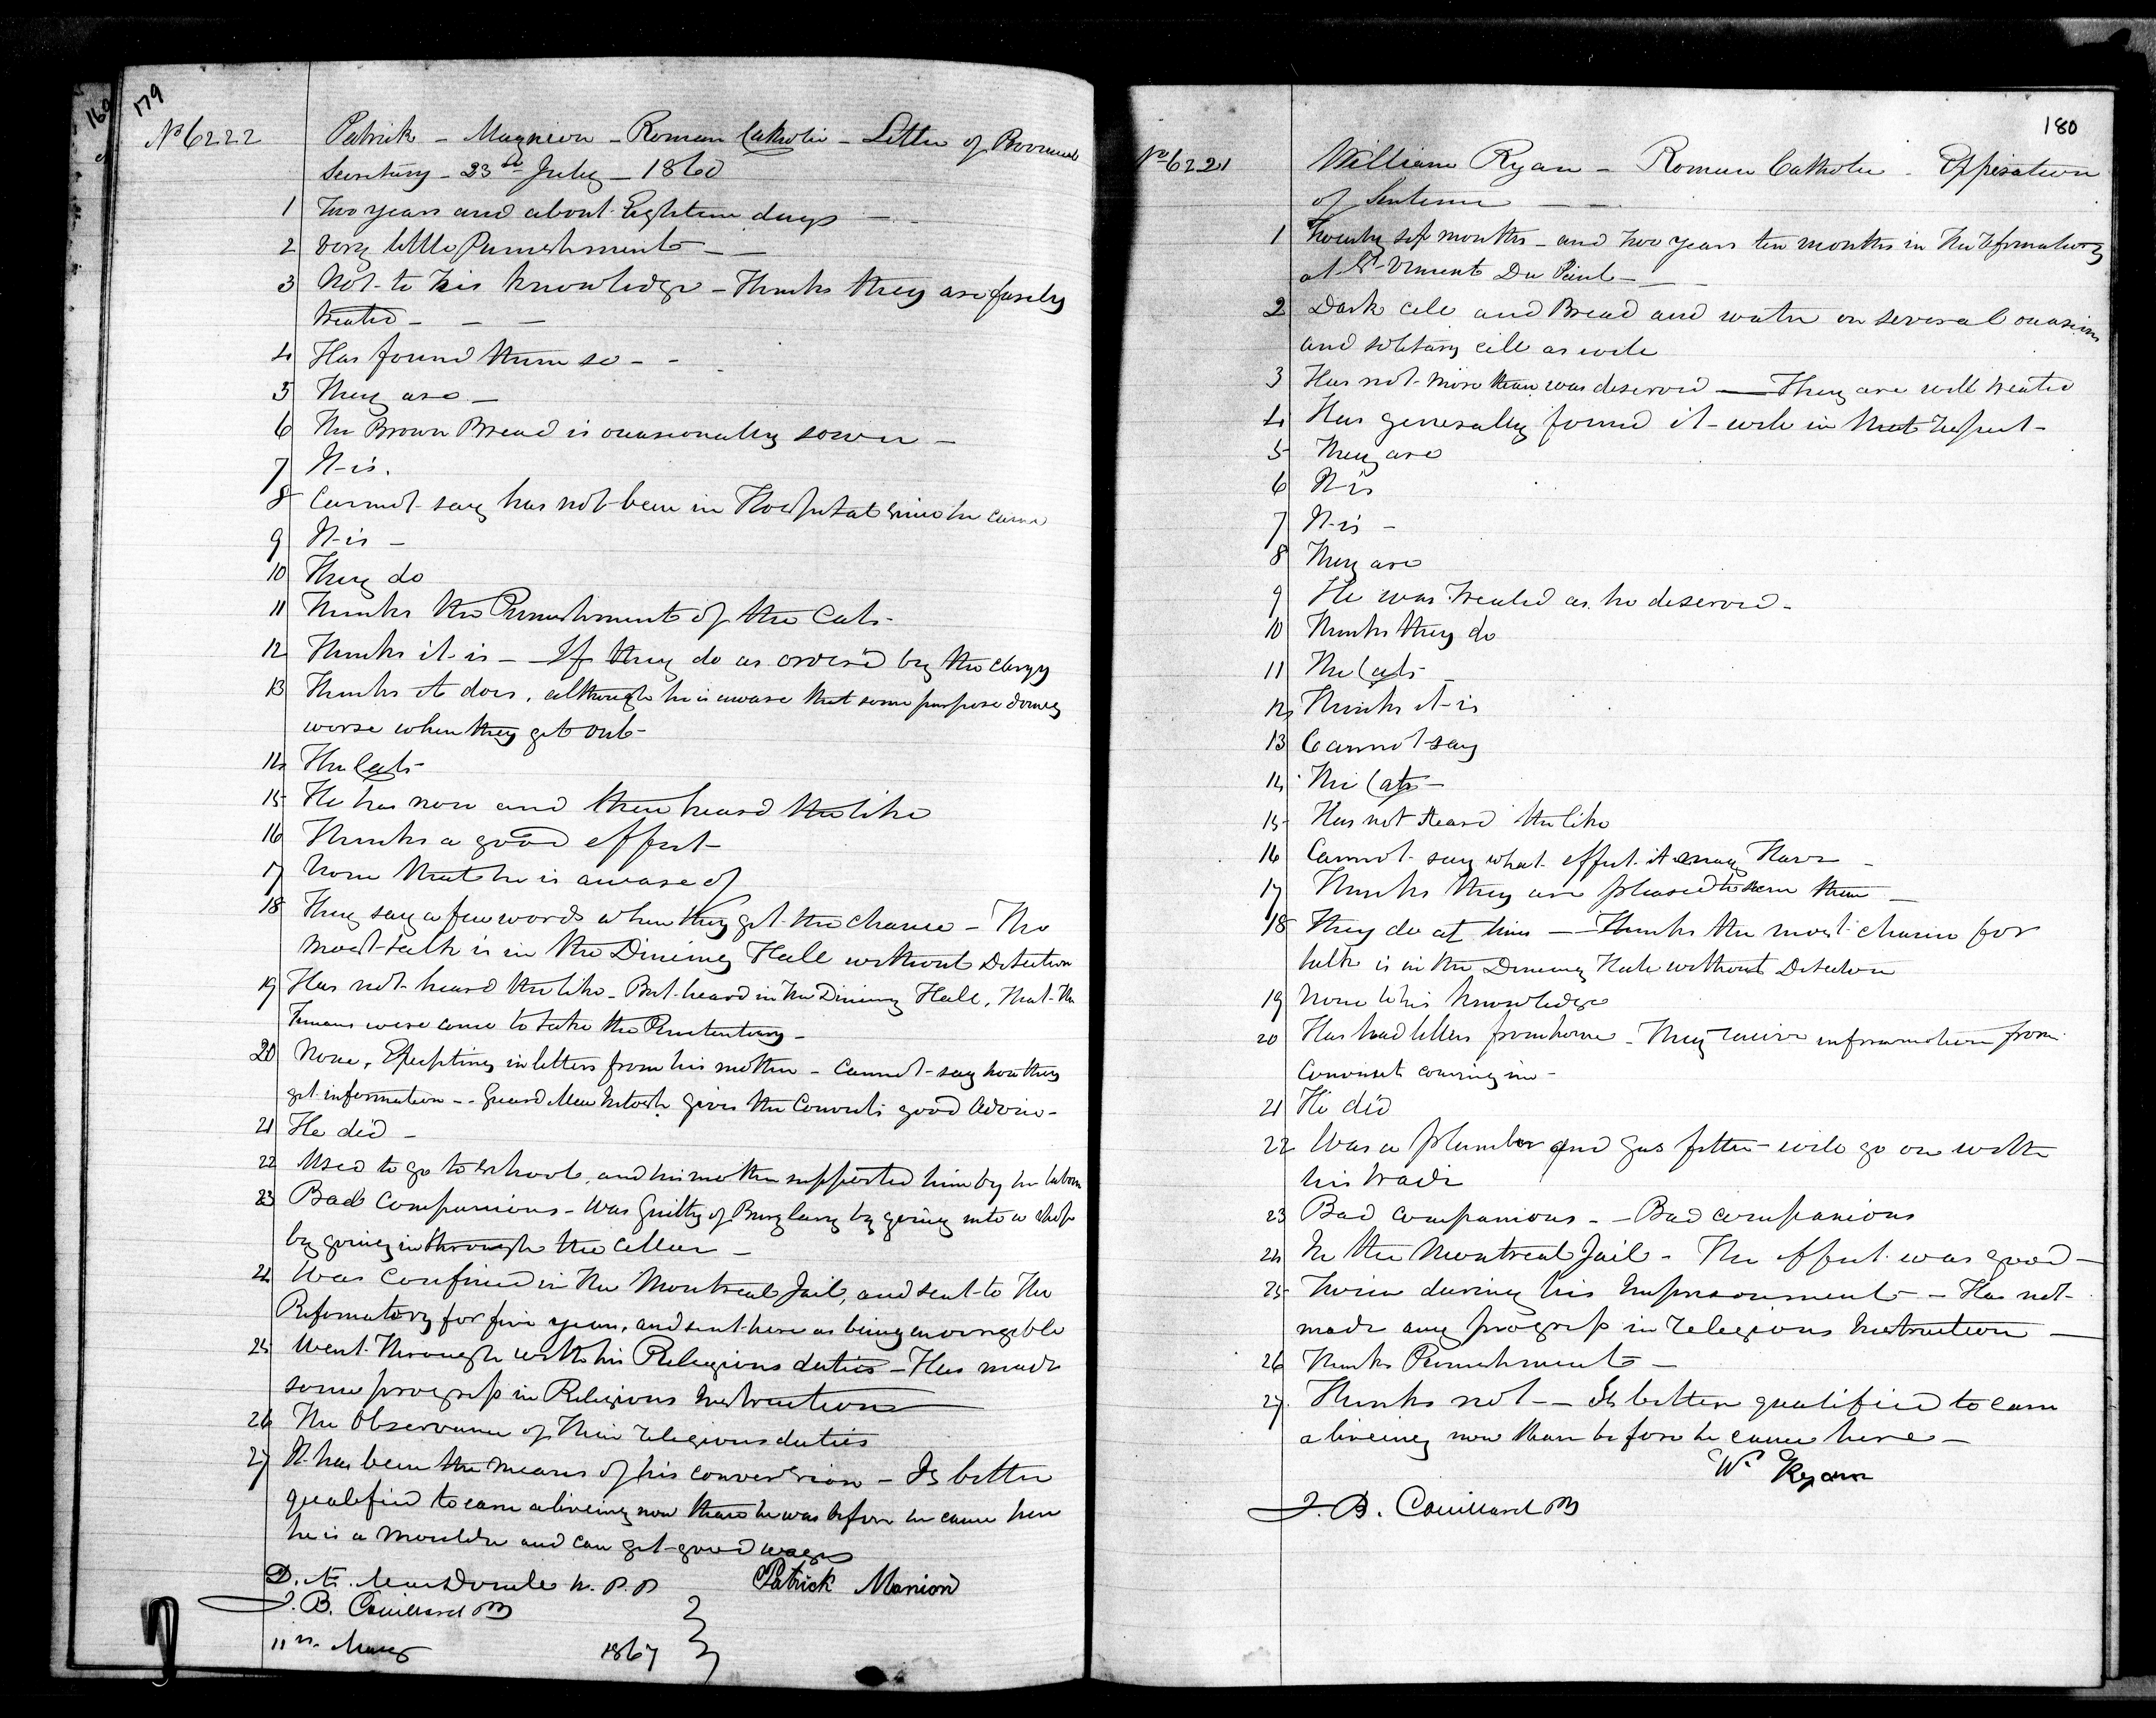 169
179
No 6222
Patrick - Magnion - Roman Catholic - Letter of Provincial
Secretary - 23rd July - 1860
1 Two years and about Eighteen days - -
2 Very little Punishment - -
3 Not to his knowledge - Thinks they are fairly
treated - - -
4 Has found them so - -
5 They are -
6 The Brown Bread is occasionally sower -
7 It is.
8 Cannot say has not been in Hospital since he came
9 It is -
10 They do
11 Thinks the Punishment of the Cats -
12 Thinks it is - If they do as orderd by the clergy
13 Thinks it does, although he is aware that some purpose doing
worse when they get out -
14 The Cats -
15 He has now and then heard the like
16 Thinks a good effect -
17 None that he is aware of
18 They say a few words when they get the chance - The
most talk is in the Dineing Hall without Detection
19 Has not heard the like - But heard in the Dineing Hall, that the
Fenians were come to take the Penitentiary -
20 None, Excepting in letters from his mother - Cannot say how they
get information - - Guard gives the Convicts good advice -
21 He did -
22 Used to go to School, and his mother supported him by her labour
23 Bad Companions - Was Guilty of Burglary by going into a shop
by going in through the Cellar -
24 Was confined in the Montreal Jail, and sent to the
Reformatory for five years, and sent here as being incorrigible
25 Went through with his Religious duties - Has made
some progress in Religious Instructions
26 The Observance of their religious duties
27 It has been the means of his conversion - Is better
qualified to earn a liveing now than he was before he came here
he is a Moulder and can get good wages
D. Æ. MacDonell W. P. P. Patrick Manion
J. B. Couillard
11th May 1867
180
No 6221
William Ryan - Roman Catholic - Expiration
of Sentence - -
1 Twenty six months - and two years ten months in the Reformatory
at St Vincent De Paul - - -
2 Dark cell and Bread and water on several occasions
and solitary cell as well
3 Has not more than was deserved - They are well treated
4 Has generally found it well in that respect -
5 They are
6 It is
7 It is -
8 They are
9 He was treated as he deserved -
10 Thinks they do
11 The Cats -
12 Thinks it is
13 Cannot say
14 The Cats -
15 Has not heard the like
16 Cannot say what effect it may have -
17 Thinks they are pleased to them -
18 They do at times - Thinks the most chance for
talk is in the Dineing Hall without Detection
19 None to his knowledge
20 Has had letters from home - They receive information from
Convicts coming in -
21 He did
22 Was a plumber and gas fitter - will go on with
his trade
23 Bad companions - - Bad companions
24 In the Montreal Jail - The effect was good -
25 Twice during his Imprisonment - Has not
made any progress in religious Instruction -
26 Thinks Punishment -
27 Thinks not - - Is better qualified to earn
a liveing now than before he came here -
Wm Ryan
J. B. Couillard